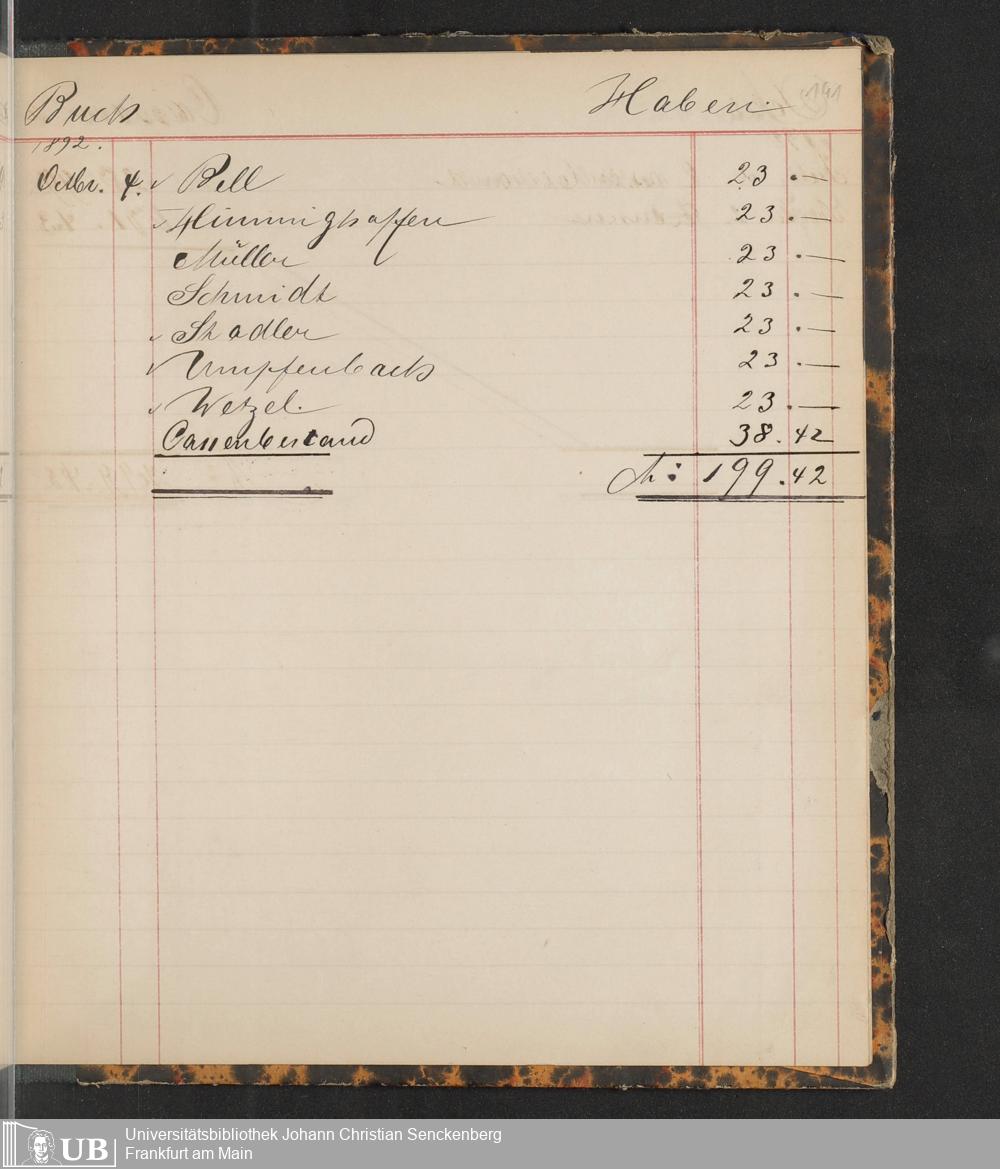 Buch Haben. 141
1892.
Octbr. 4. Bell 23.—
Himmighoffen 23.—
Müller 23.—
Schmidt 23.—
Stadler 23.—
Umpfenbach 23.—
Wetzel. 23.—
Cassenbestand 38.42
M: 199.42
UB Universitätsbibliothek Johann Christian Senckenberg
Frankfurt am Main